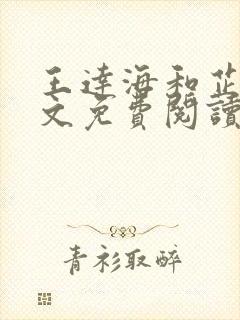 王達海和芷
文免費閱讀
青衫取醉